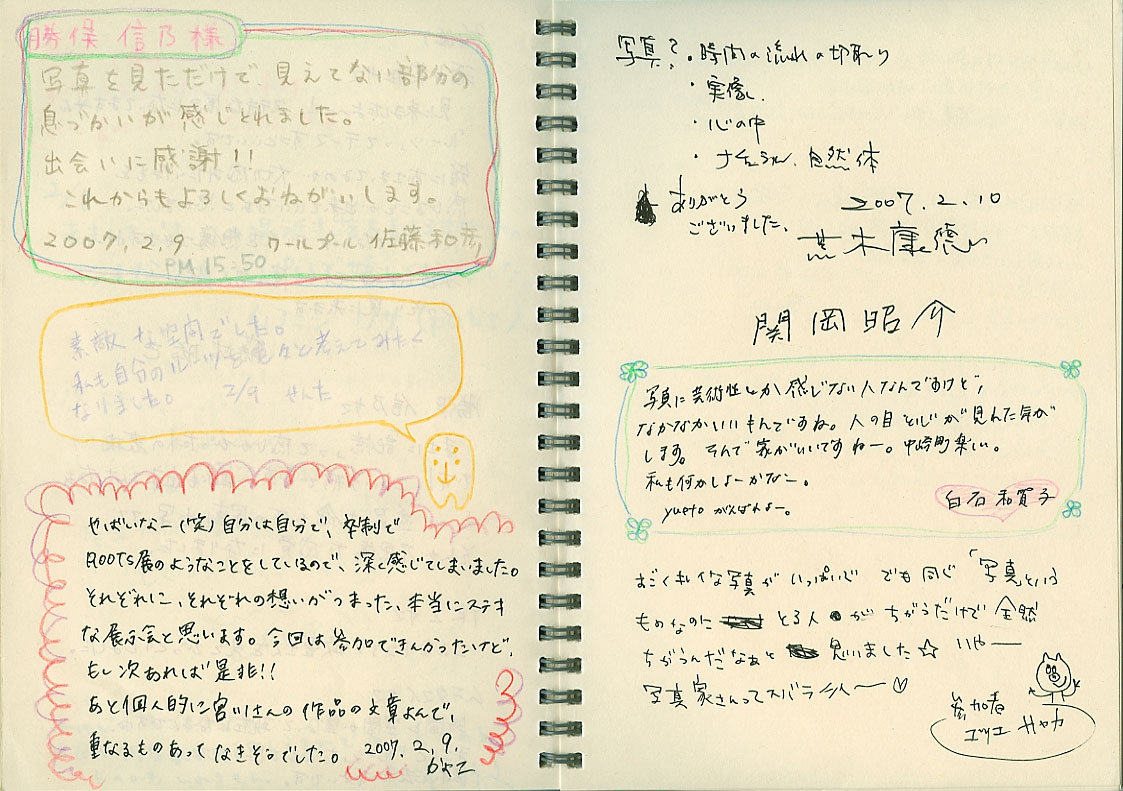 勝俣 信乃様
写真を見ただけで、見えてない部分の
息づかいが感じとれました。
出会いに感謝!!
これからもよろしくおねがいします。
2007.2.9 ワールプール 佐藤和彦
PM 15:50
素敵な空間でした。
私も自分のルーツを 考えてみたく
なりました。 2/9
やばいなー(笑)自分は自分で、卒制で
ROOTS展のようなことをしているので、深く感じてしまいました。
それぞれに、それぞれの想いがつまった、本当にステキ
な展示会と思います。今回は参加できんかったけど、
もし次あれば是非!!
あと個人的に宮いさんの作品の文章よんで、
重なるものあって なきそーでした。 2007.2.9.
かよこ
写真?・時間の流れの切取り
・実像
・心の中
・ナチュラル、自然体
ありがとう
ございました、
2007.2.10
荒木康
関岡昭介
写真に芸術性とか感じない人なんですけど、
なかなかいいもんですね。人の目 が見れた気が
します。そんで家がいいですねー。中崎町楽しい。
私も何かしよーかなー。
yueto がんばんよー。
白石和賀子
すごくキレイな写真がいっぱいで でも同じ「写真」という
ものなのに とる人 が ちがうだけで 全然
ちがうんだなぁと 思いました☆ いやー
写真家さんってスバラシイ〜♡
参加者
ユツエ サヤカ